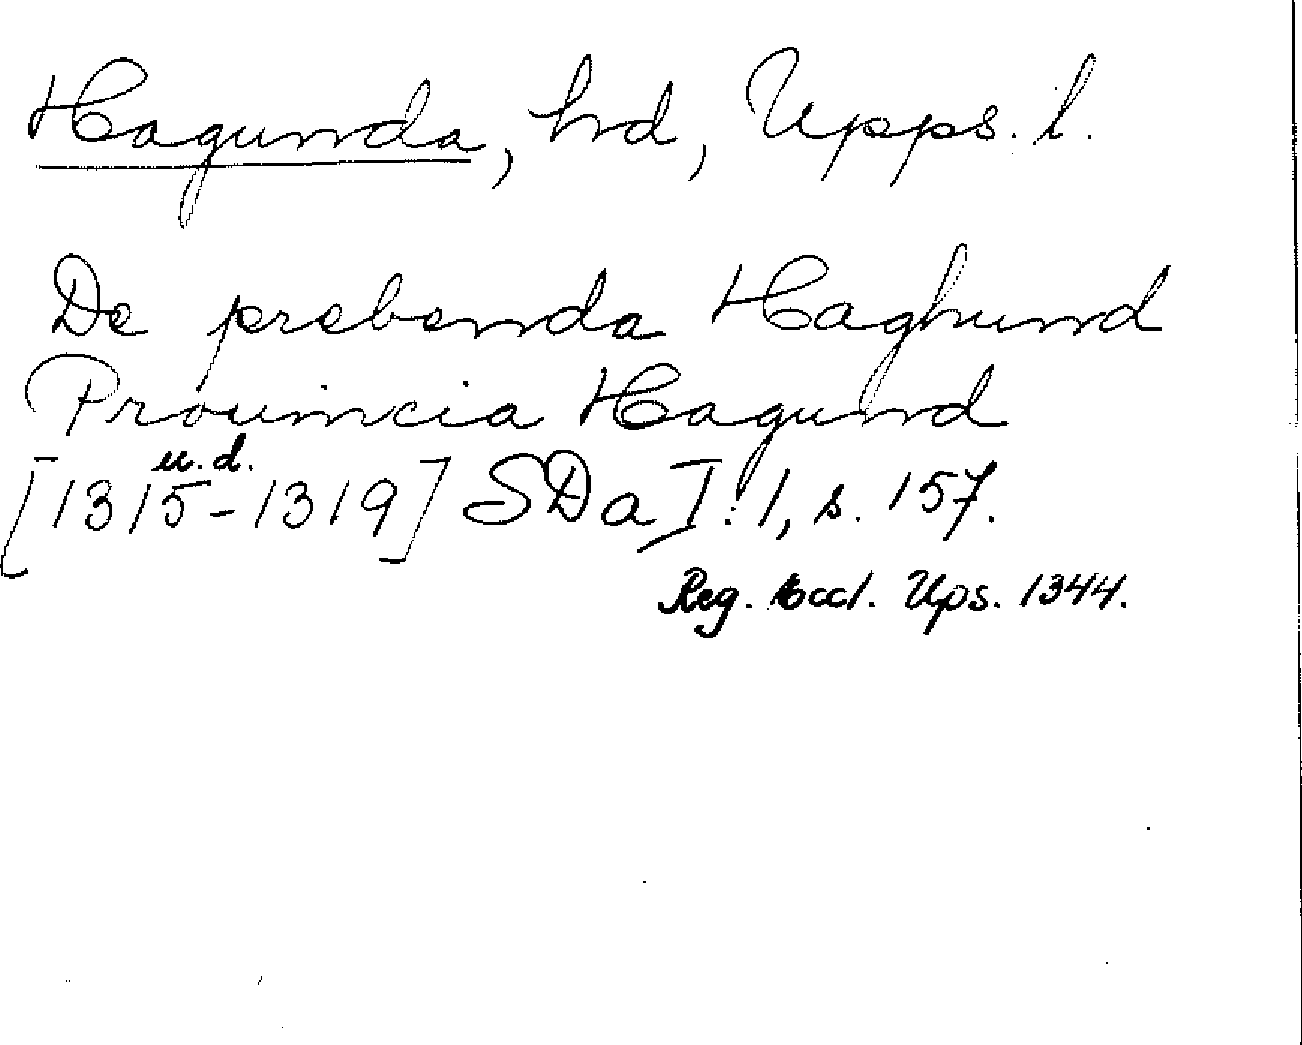 Hagunda, hd, Upps. l.
De prebenda Haghund
Prouincia Hagund
u.d.
[1315-1319] SDa I:1, s. 157.
Reg. Eccl. Ups. 1344.